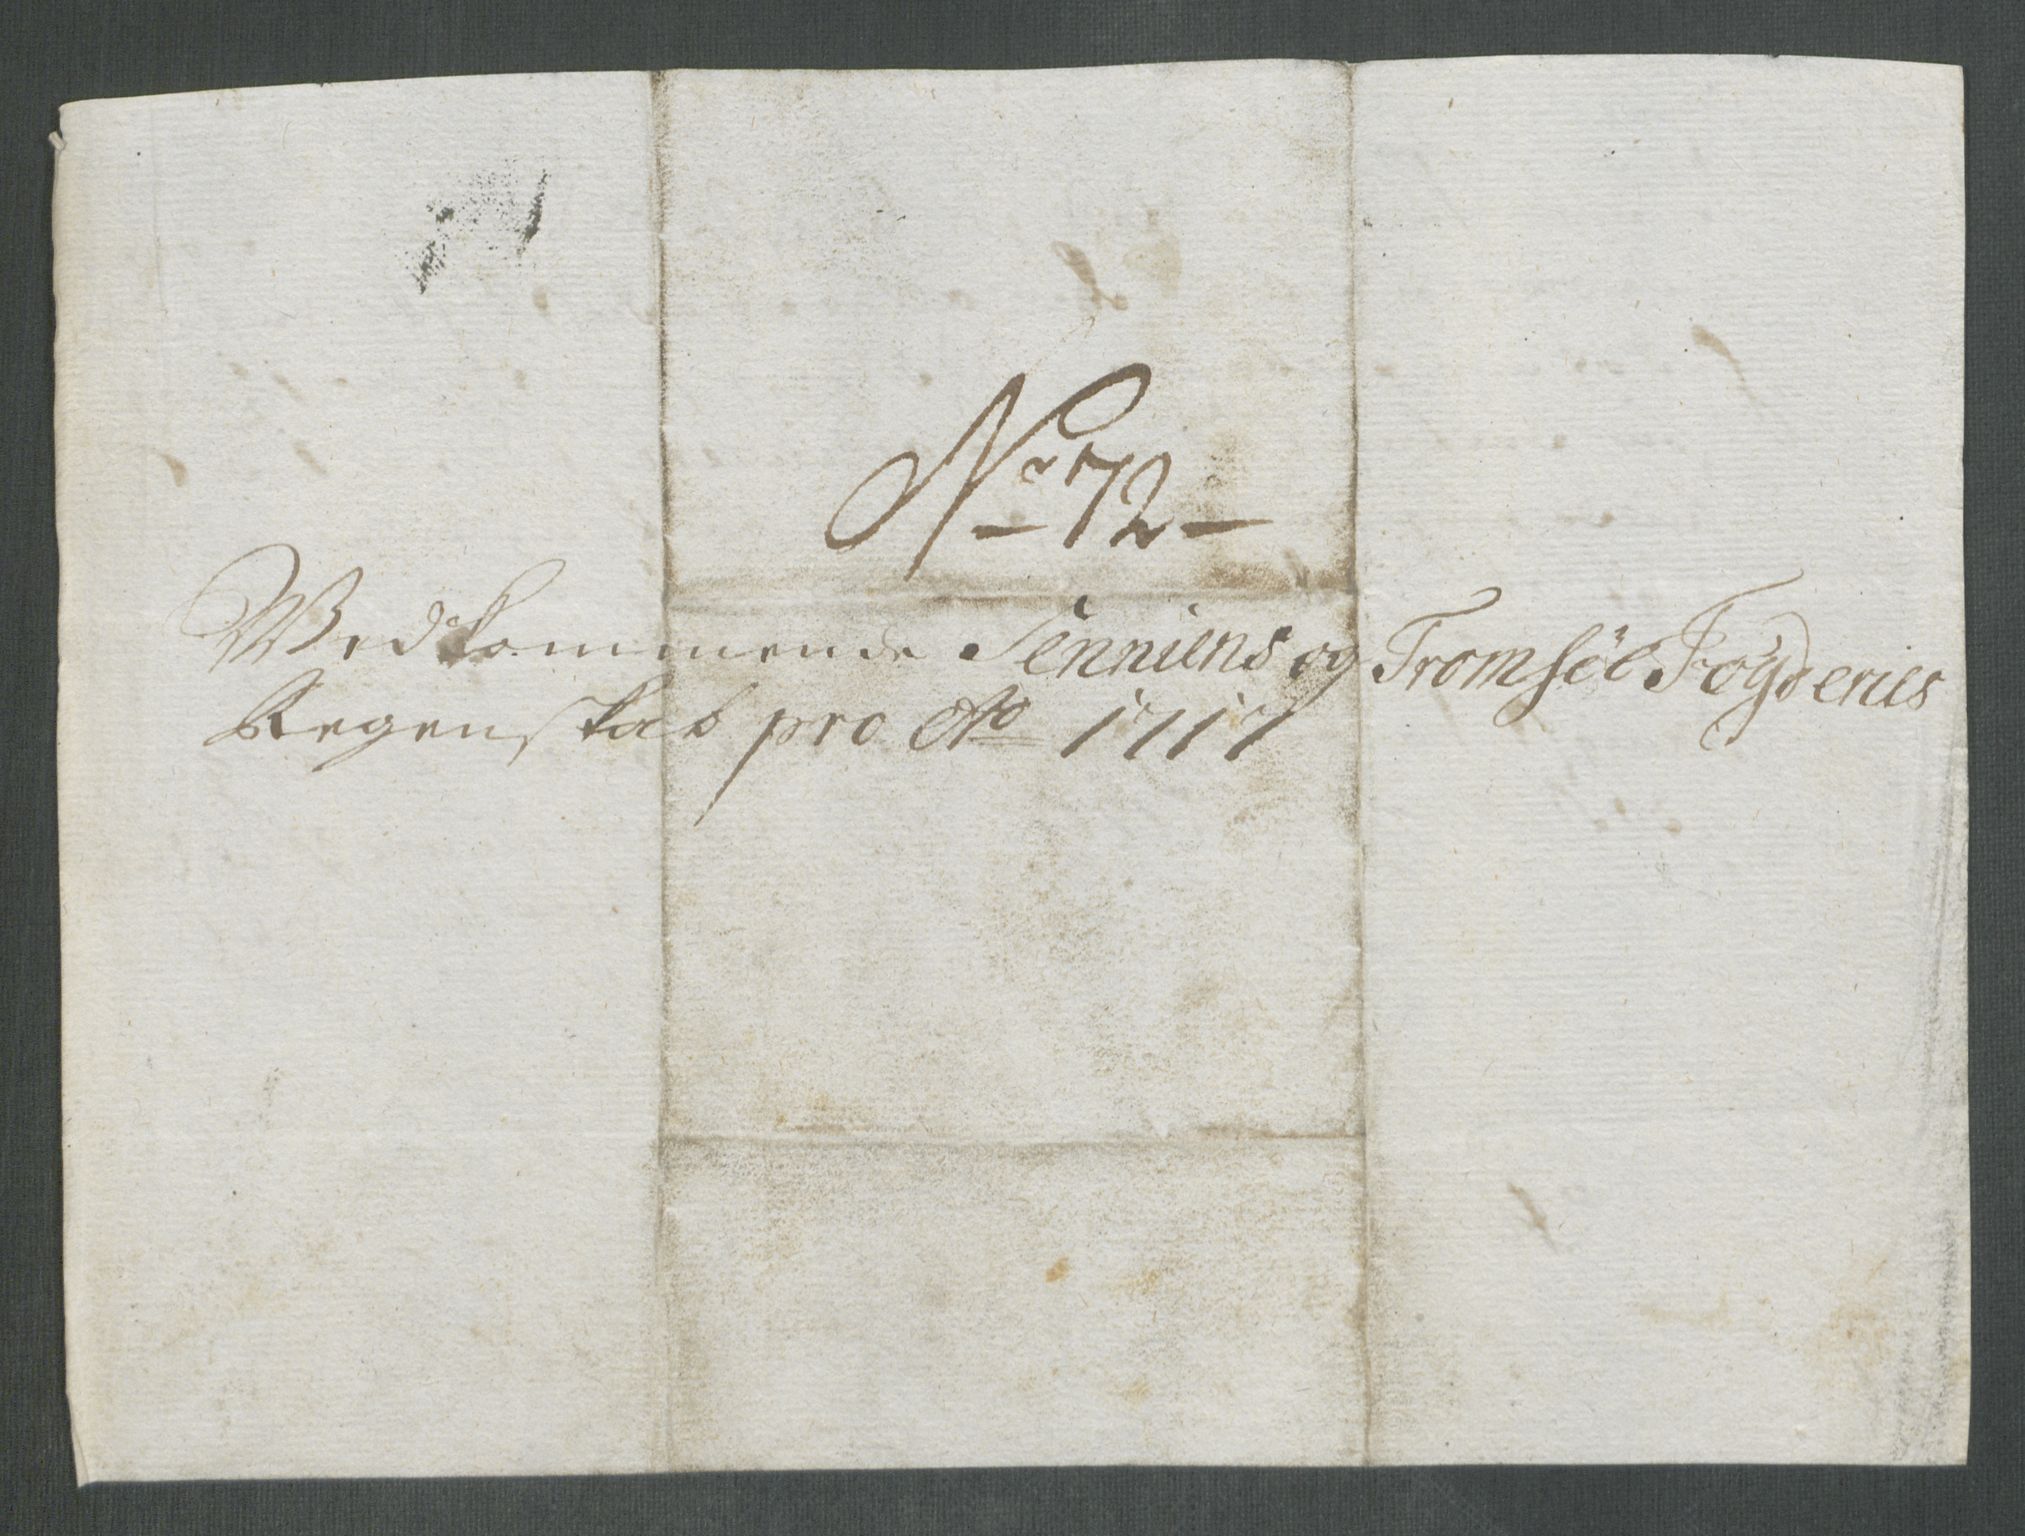 No 72
Wedkommende Senniens og Tromsöe Fogderies
Regenskab pro Ao 1717